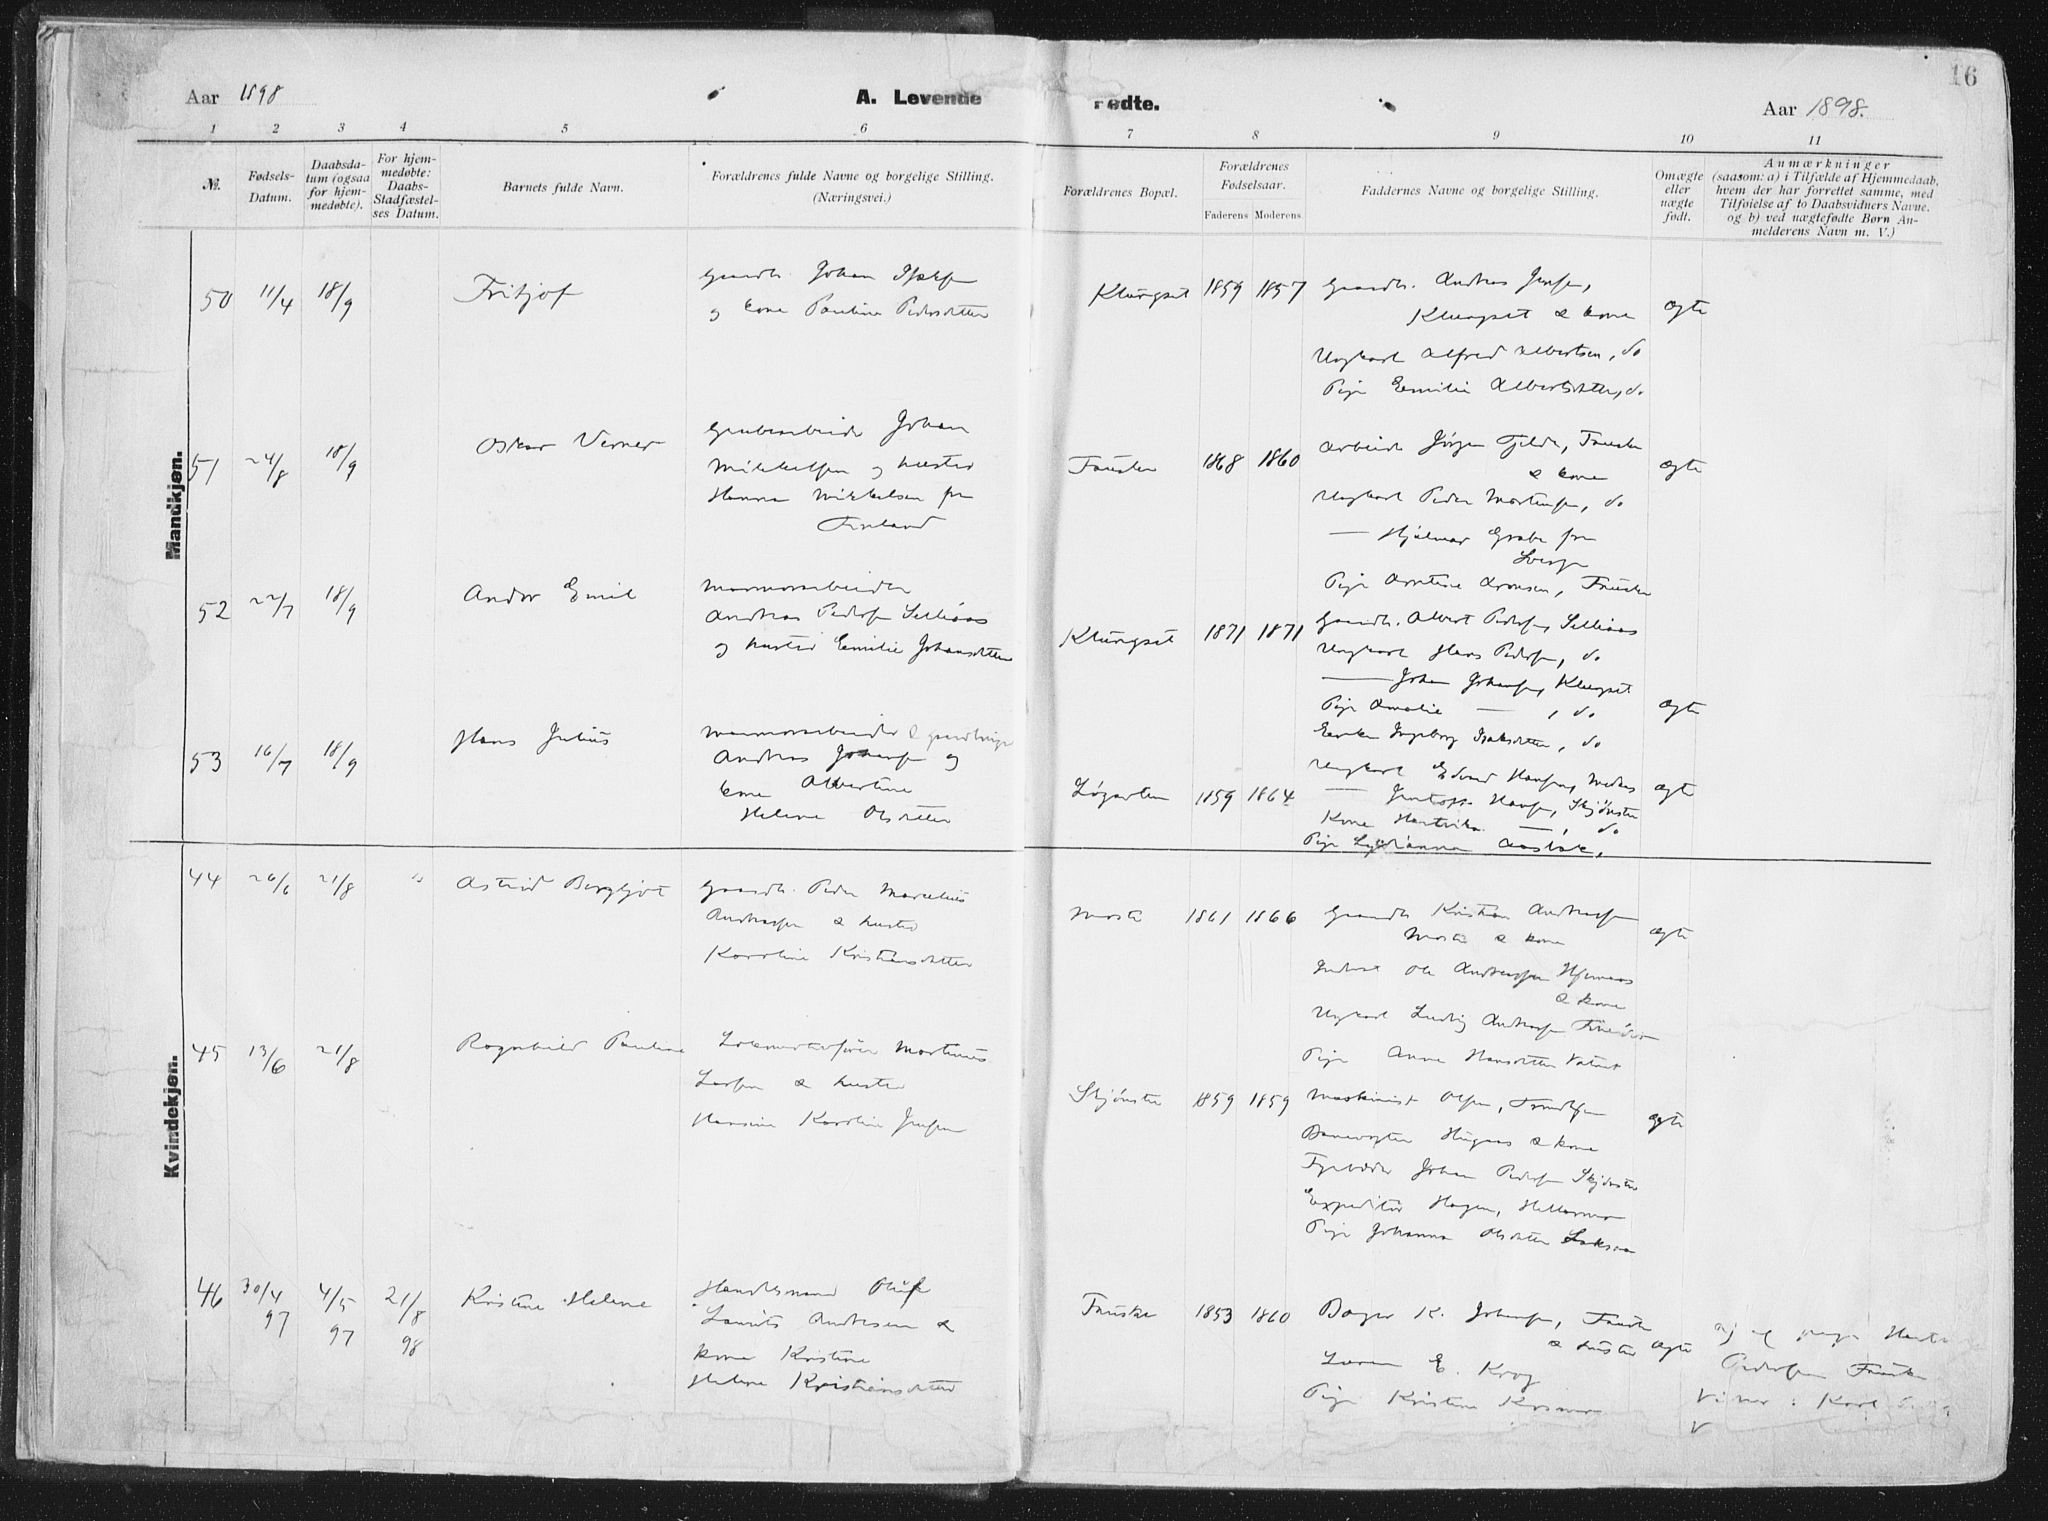 16
Aar 1898
A. Levende
fødte.
Aar 1898.
1 2 3 4 5 6 7 8 9 10 11
№.
Fødsels-
Datum.
Daabsda-
tum (ogsaa
for hjem-
medøbte).
For hjem-
medøbte:
Daabs-
Stadfæstel-
ses Datum.
Barnets fulde Navn.
Forældrenes fulde Navne og borgelige Stilling.
(Næringsvei.)
Forældrenes Bopæl.
Forældrenes
Fødselsaar.
Faderens Moderens
Faddernes Navne og borgelige Stilling.
Omægte
eller
uægte
født.
Anmærkninger
(saasom: a) i Tilfælde af Hjemmedaab,
hvem der har forrettet samme, med
Tilføielse af to Daabsvidners Navne.
og b) ved uægtefødte Børn An-
melderens Navn m. V.)
Mandkjøn.
50 11/4 18/9 Fritjof
Gaardbr. Johan
og kone Pauline Pedersdatter
Klungset 1859 1857
Gaardbr. Andreas Jensen,
Klungset & kone
Ungkarl Alfred Albertsen, do
Pige Emilie Albertsdatter, do
ægte
51 24/8 18/9 Oskar Verner
Grubearbeider Johan
Mikkelsen og hustru
Hanna Mikkelsen fra
Finland
Fauske 1868 1860
Arbeider Jørgen Fjelde, Fauske
& kone
Ungkarl Peder Mortensen, do
— Hjalmar Grabe fra
Sverige
Pige Arntine Aronsen, Fauske
ægte
52 22/7 18/9 Andor Emil
Marmorarbeider
Andreas Pedersen Selliaas
og hustru Emilie Johansdatter
Klungset 1871 1871
Gaardbr. Albert Pedersen, Selliaas
Ungkarl Hans Pedersen, do
— Johan Johansen, Klungset
Pige Amalie — , do
Enke Ingeborg Isaksdatter, do
ægte
53 16/7 18/9 Hans Julius
Marmorarbeider &
Andreas Johansen og
kone Albertine
Helene Olsdatter
Løgavlen 1859 1864
Ungkarl Edvard Hansen,
— Hansen, Skjønstu
Kone Hartvika — , do
Pige Aasbak,
ægte
Kvindekjøn.
44 26/6 21/8 " Astrid Bergljot
Gaardbr. Peder Marcelius
Andreassen & hustru
Karoline Kristiansdatter
Mosti 1861 1866
Gaardbr Kristian Andreassen
Mosti & kone
Inderst Ole Andreassen
& kone
Ungkarl Ludvig Andreassen
Pige Anna Hansdatter
ægte
45 13/6 21/8 Ragnhild Pauline
Lokomotivfører Martinus
Larsen & hustru
Hansine Karoline Jensen
Skjønstu 1859 1859
Maskinist Olsen,
Banevogter & kone
Fyrbøder Johan Pedersen Skjønstu
Expeditør Hagen,
Pige Johanna Olsdatter
ægte
46 30/4 97 4/5 97 21/8 98 Kristine Helene
Handelsmand Oluf
Laurits Andresen &
kone Kristine
Helene Kristiansdatter
Fauske 1853 1860
Bager K. Johansen, Fauske
& hustru
E. Krog
Pige Kristine
ægte
a) af pige
Pedersen Fauske
Vidner: Karl